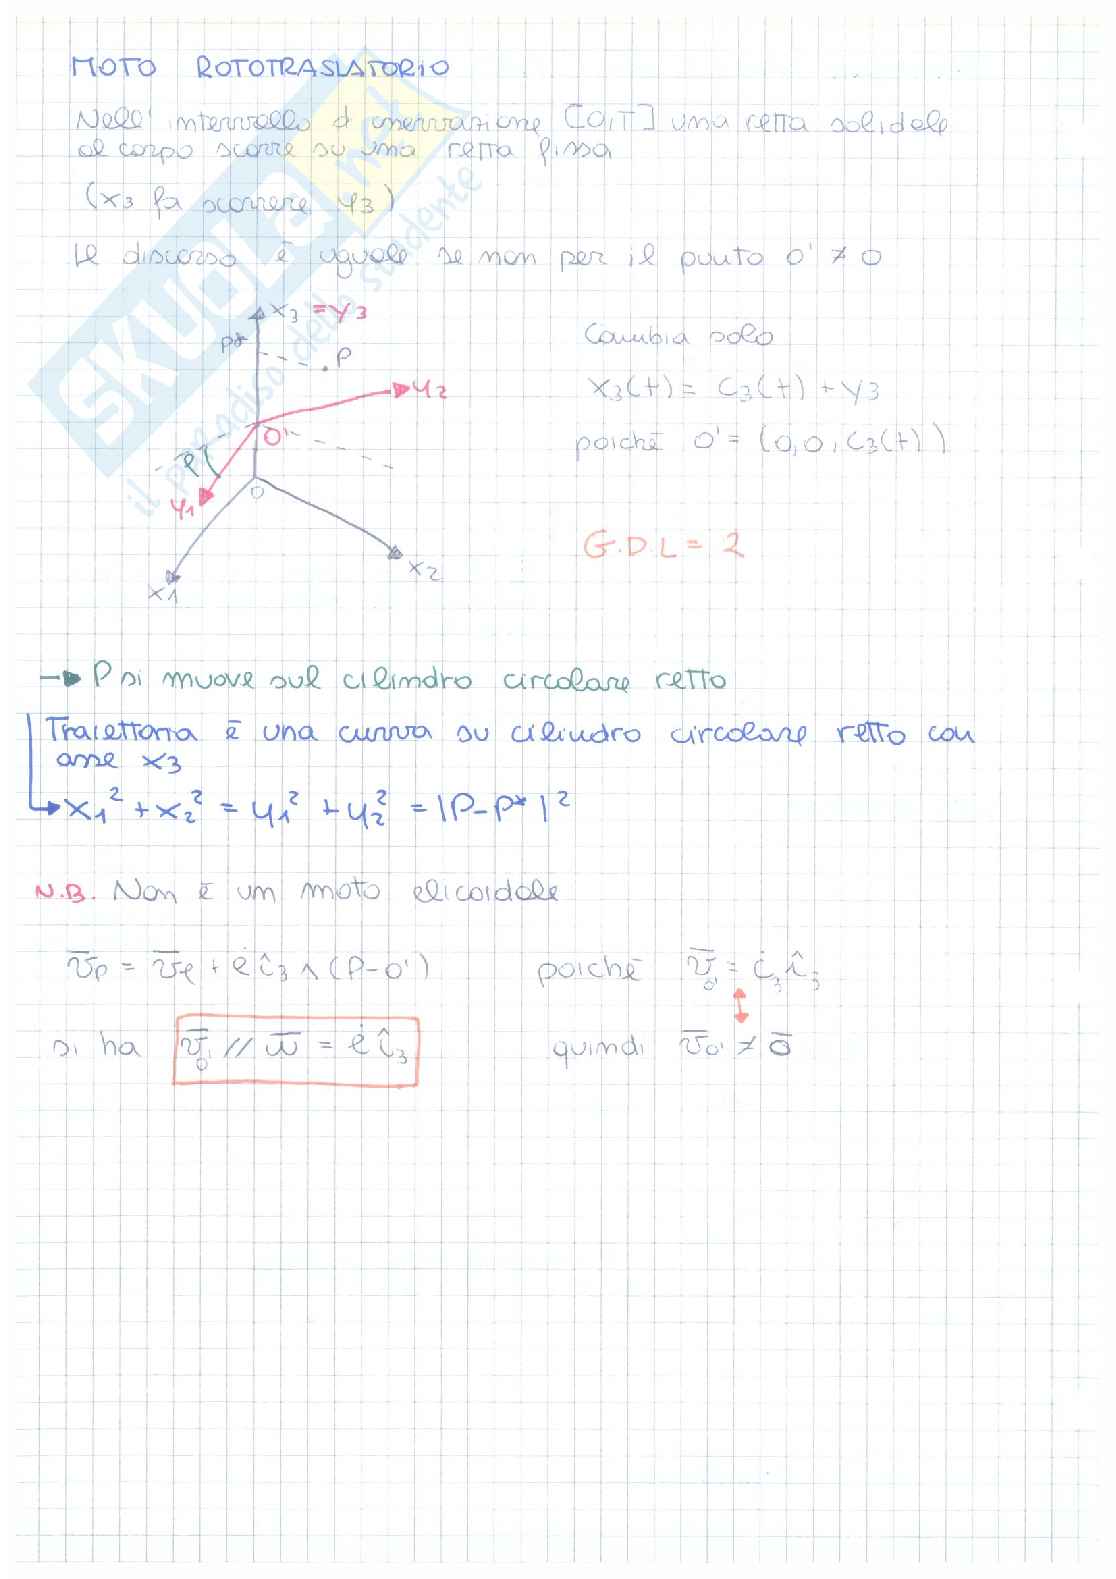 MOTO ROTOTRASLATORIO
Nell' intervallo d' osservazione [0,T] una retta solidale
al corpo scorre su una retta fissa
(x3 fa scorrere y3)
Il discorso è uguale se non per il punto O' ≠ O
x3 = y3
P*
P
y2
O'
φ
y1
O
x1
x2
Cambia solo
x3(t) = c3(t) + y3
poiché O' = (0,0,c3(t))
G.D.L = 2
→ P si muove sul cilindro circolare retto
Traiettoria è una curva su cilindro circolare retto con
asse x3
→ x1² + x2² = y1² + y2² = |P-P*|²
N.B. Non è un moto elicoidale
poiché v̄o' = ċ3 î3
si ha v̄o' // w̄ = φ̇ î3
quindi v̄o' ≠ ō
SKUOLA.net
il paradiso dello studente